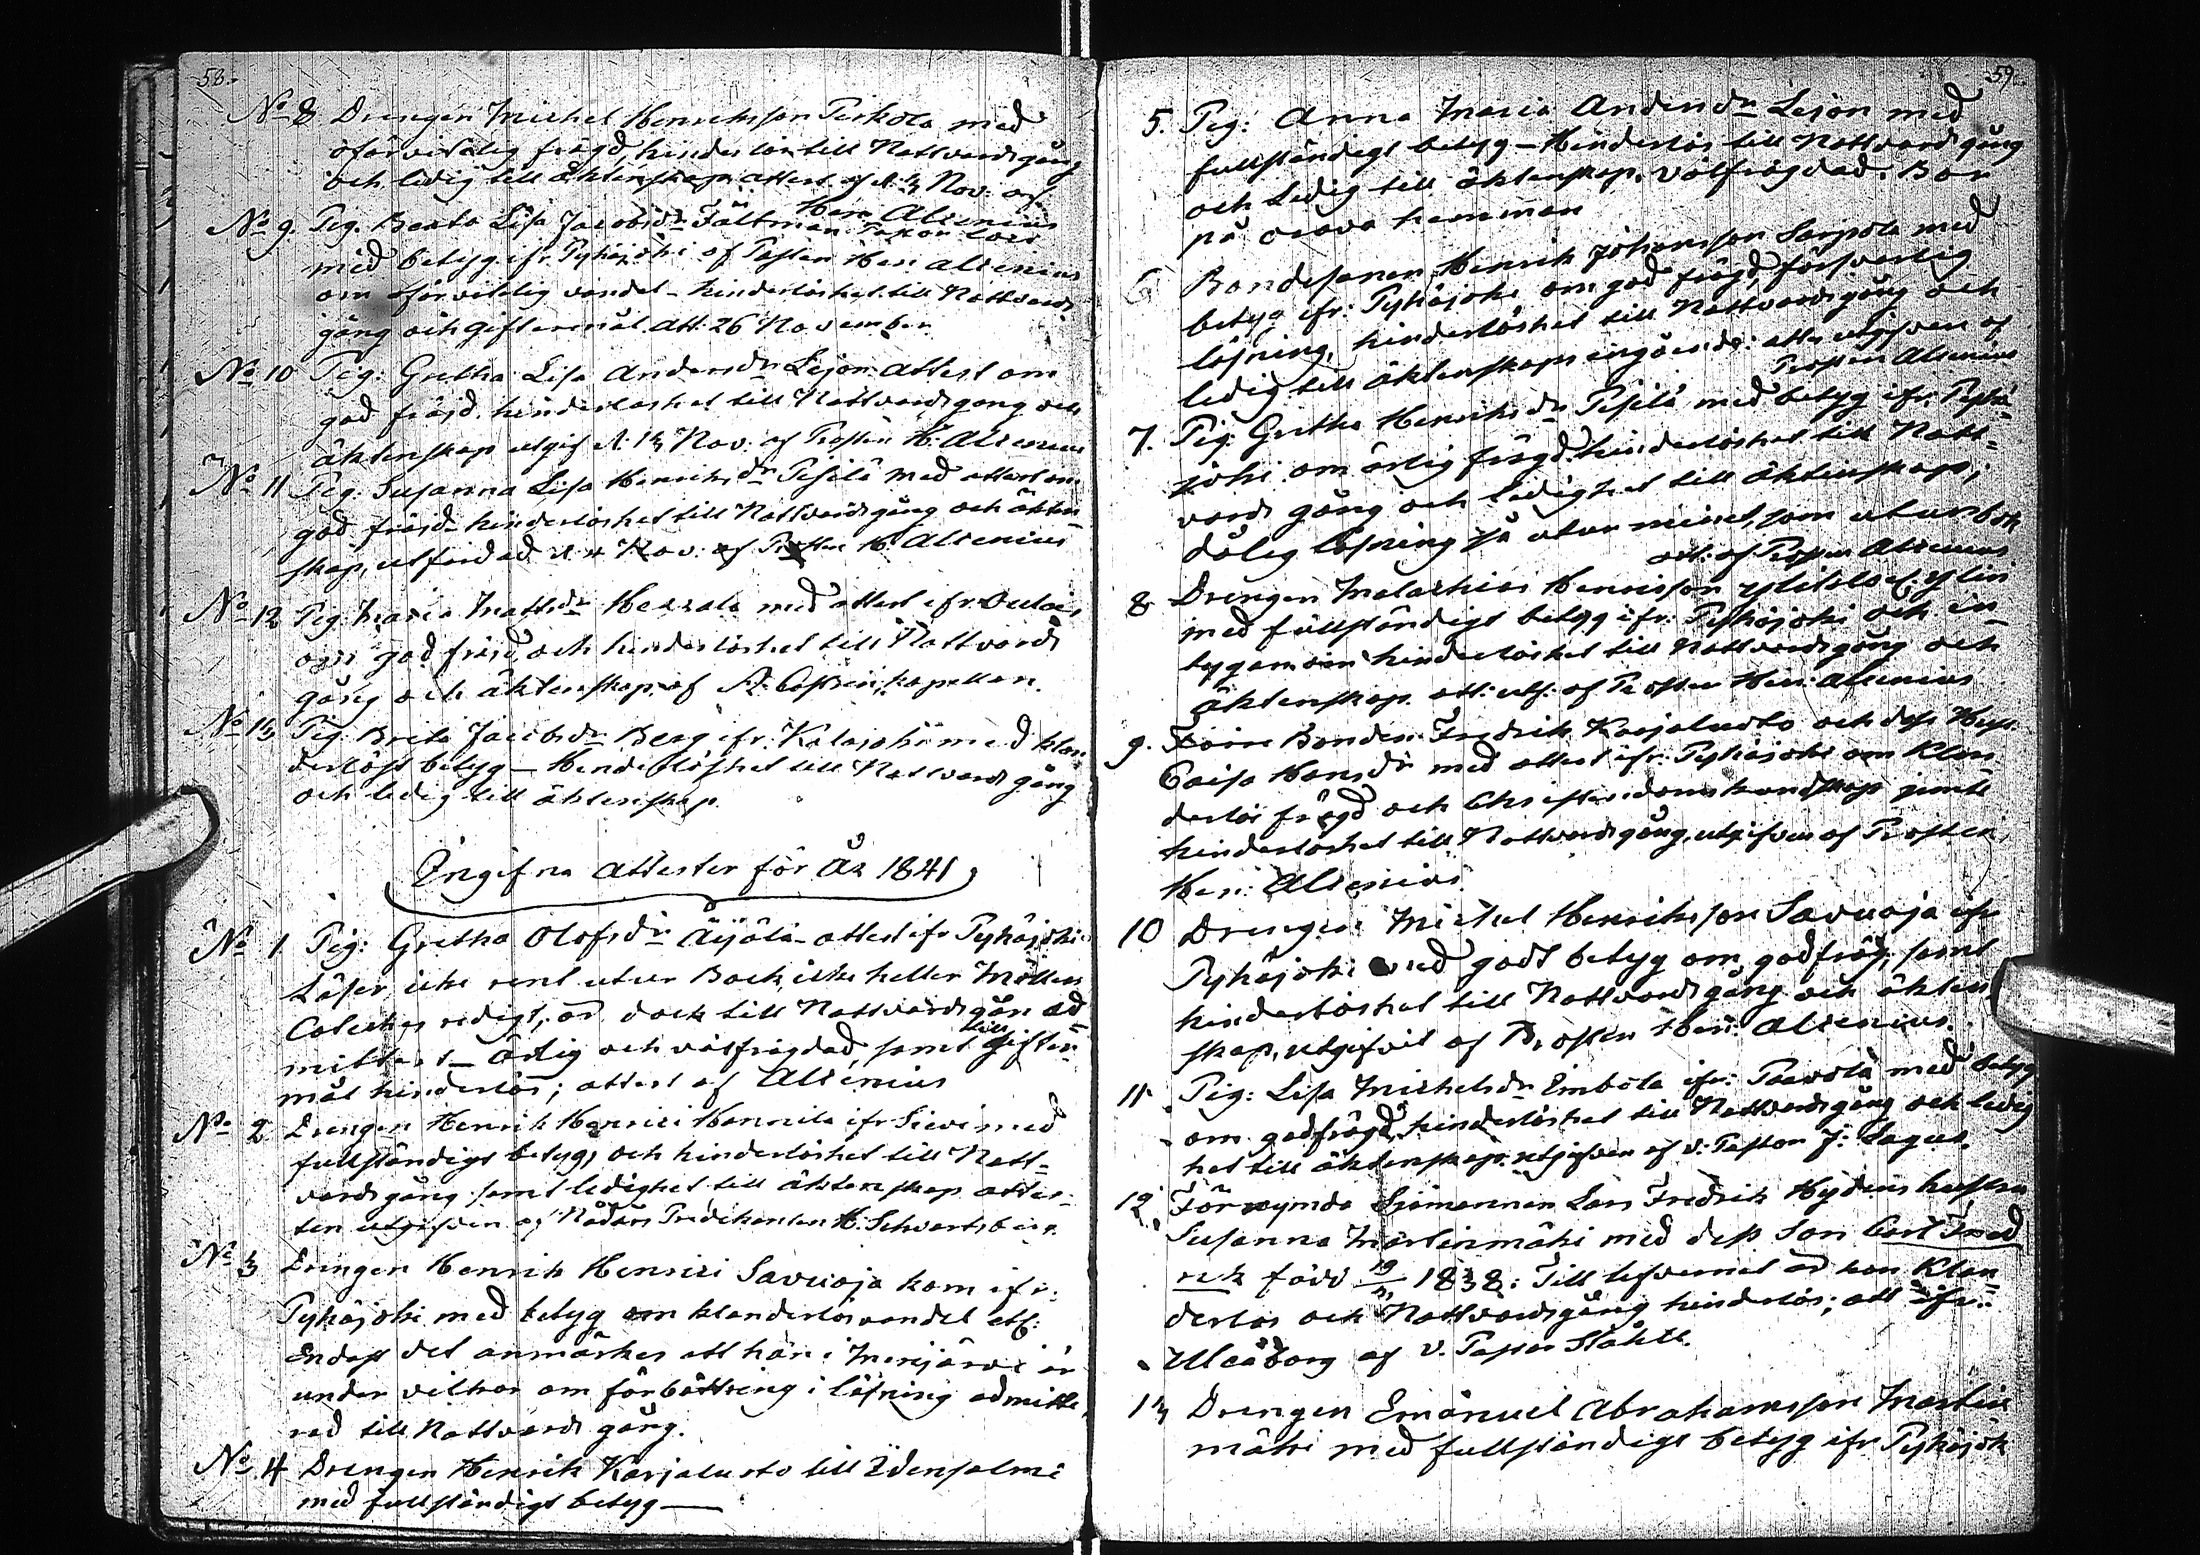 58.
No 8 Drengen Michel Henriksson Perkola med
oförvitelig frägd, hinderlös till Nattvardsgång
och ledig till äktenskap attest af d. 13 Nov. af
Hen: Alcenius
No 9. Pig. Beata Lisa Jacobsdr Fältman
med betyg ifr. Pyhäjoki af Prosten Hen: Alcenius
om oförvitelig vandel - hinderlöshet till Nattvards
gång och giftermål att: 26 November
No 10 Pig: Gretha Lisa Andersdr Lejon attest om
god fräjd, hinderlöshet till Nattvardsgång och
äktenskap utgif d. 13 Nov. af Prosten H: Alcenius
No 11 Pig. Susanna Lisa Henriksdr Pesilä med attest om
god fräjd hinderlöshet till Nattvardsgång och äkten-
skap, utfärdad d 4 Nov. af Prosten H. Alcenius
No 12 Pig Maria Mattsdr Hexala med attest ifr. Oulais
om god fräjd och hinderlöshet till Nattvards
gång och äktenskap af kapellan.
No 13 Pig. Brita Jacobsdr Berg ifr. Kalajoki med klan-
derlöst betyg — Hinderlöshet till Nattvardsgång
och ledig till äktenskap.
Ingifna Attester för År 1841
No 1 Pig: Gretha Olofsdr Äijälä attest ifr Pyhäjoki
Läser icke rent utur Bock, icke heller Möllers
Cateches redigt, är dock till Nattvardsgån ad-
mitterd - ärlig och välfrägdad, samt till giften-
mål hinderlös; attest af Alcenius
No 2 Drengen Henrik Henrici Hannila ifr Sievi med
fullständigt betyg, och hinderlöshet till Natt-
vardsgång samt ledighet till äktenskap attes-
ten utgifven af Nådårs Predikanten H. Schvartsberg.
No 3 Drengen Henrik Henrici Savuoja kom ifr:
Pyhäjoki med betyg om klanderlös vandel etc:
Endast det anmärkes att han i Merijärvi är
under vilkor om förbättring i läsning admitte-
rad till Nattvardsgång.
No 4 Drengen Henrik Karjaluoto till Idensalmi
med fullständigt betyg —
59.
5. Pig: Anna Maria Andersdr Lejon med
fullständigt betyg - Hinderlös till Nattvardsgång
och ledig till äktenskap. Välfrägdad. Bor
på orava hemman
6 Bondesonen Henrik Johansson Sarpola med
betyg ifr: Pyhäjoki om god frägd, försvarlig
läsning, hinderlöshet till Nattvardsgång och
ledig till äktenskaps ingående: att: utgifven af
Prosten Alcenius
7. Pig: Gretha Henriksdr Pesilä med betyg ifr. Pyhä-
joki om ärlig frägd, hinderlöshet till Natt-
vards gång och ledighet till äktenskap;
dålig läsning så utur minnet, som utur bok
att: af Prosten Alcenius
8 Drengen Malachias Henricsson Ylitalo
med fullständigt betyg ifr: Pyhäjoki och in-
tygam om hinderlöshet till Nattvardsgång och
äktenskap. att: utg: af Prosten Hen: Alcenius
9. Förre Bonden Fredrik Karjaluoto och dess Hust.
Caisa Hansdr med attest ifr: Pyhäjoki om klan
derlös frägd och Christendomskundskap jemte
hinderlöshet till Nattvardsgång, utgifven af Prosten
Hen: Alcenius.
10 Drengen Michel Henriksson Savuoja ifr
Pyhäjoki med godt betyg om god fräg, samt
hinderlöshet till Nattvardsgång och äkten
skap, utgifvit af Prosten Hen: Alcenius.
11. Pig: Lisa Michelsdr Embola ifr: Paavola med betyg
om god frägd, hinderlöshet till Nattvardsgång och ledig
het till äktenskap. utgifven af v: Pastor J: Lagus.
12 Förrymda Sjömannen Lars Fredrik Hydens hustru
Susanna Martinmäki med dess Son Carl Fred
rik född 1838: Till lefvernet är hon Klan-
derlös och Nattvardsgång hinderlös; att ifr:
Uleåborg af v. Pastor Ståhle.
13 Drengen Emanuel Abrahamsson Martin
mäki med fullständigt betyg ifr Pyhäjok